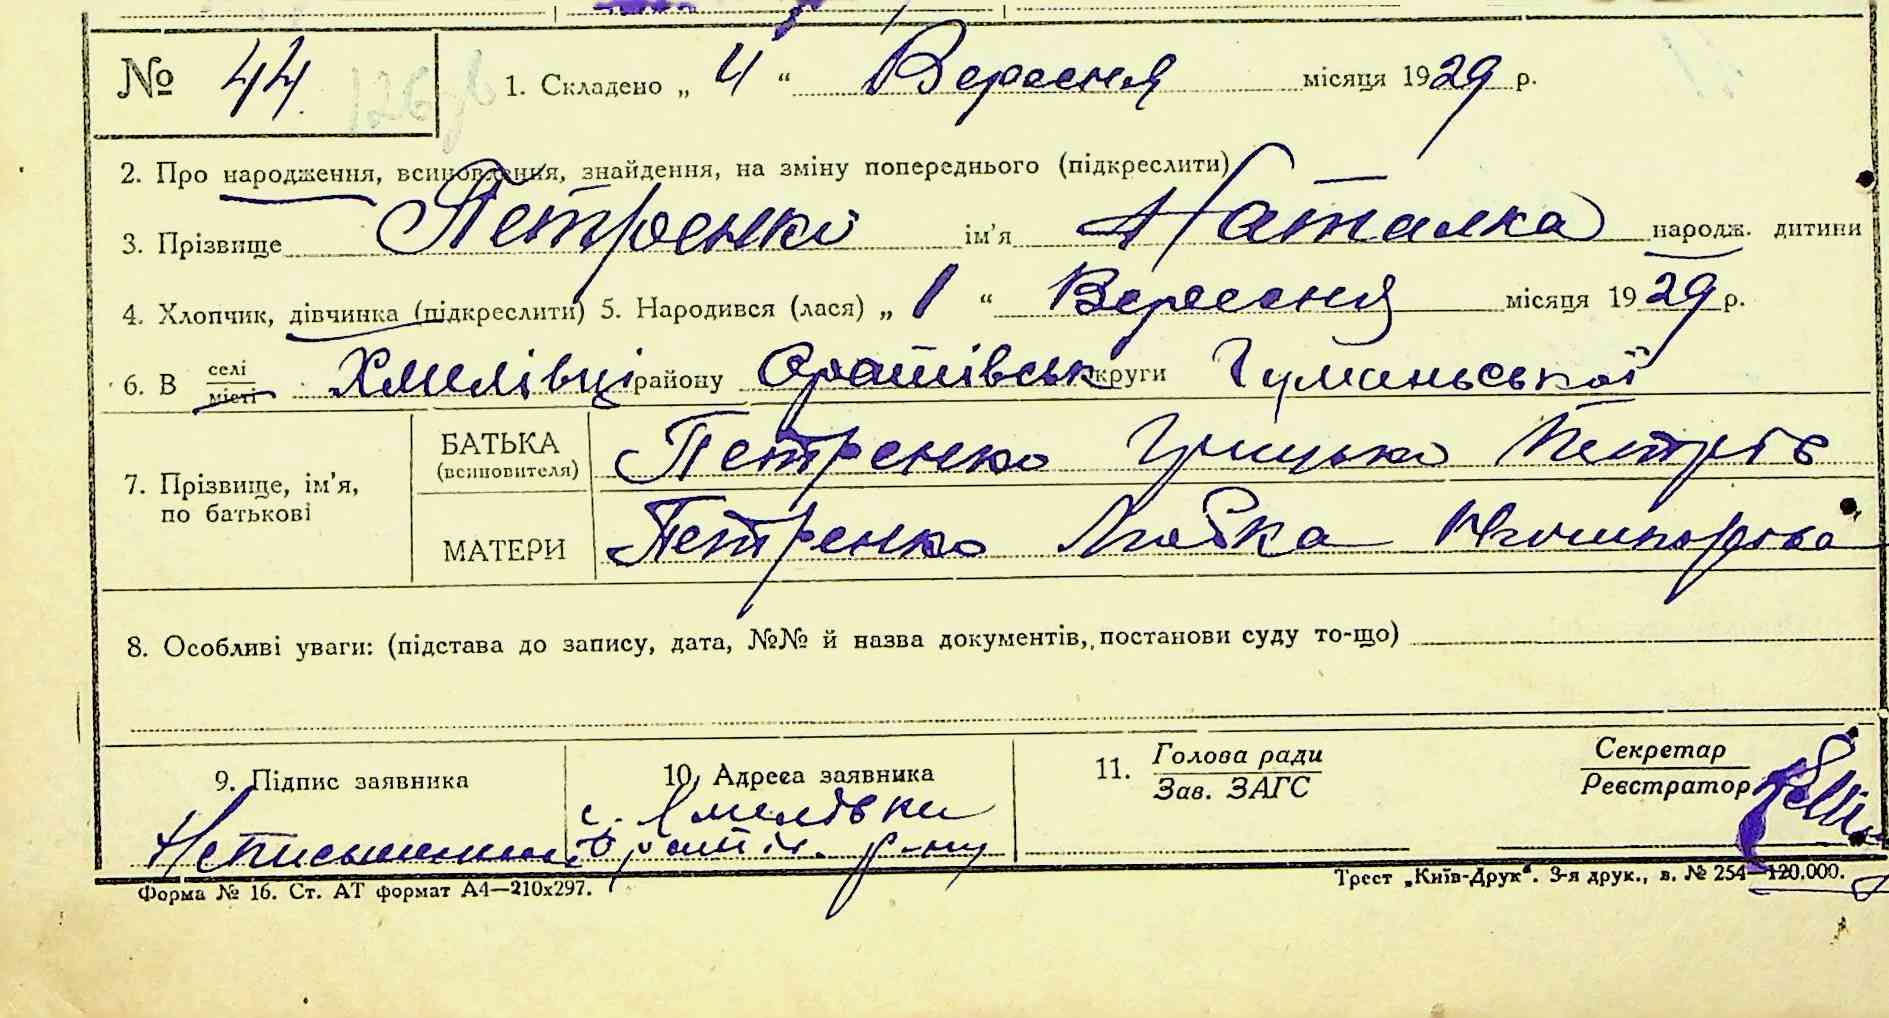 № 44. 1. Складено „ 4 “ Вересня місяця 1929 р.
2. Про народження, всиновлення, знайдення, на зміну попереднього (підкреслити)
3. Прізвище Петренко ім'я Наталка народж. дитини
4. Хлопчик, дівчинка (підкреслити) 5. Народився (лася) „ 1 “ Вересня місяця 1929 р.
6. В селі місті Хмелівці району Оратівськ округи Гуманьської
7. Прізвище, ім'я, по батькові
БАТЬКА (всиновителя) Петренко Грицько Петрів
МАТЕРИ Петренко Любка Ничипорова
8. Особливі уваги: (підстава до запису, дата, №№ й назва документів, постанови суду то-що)
9. Підпис заявника
Неписьменний
10. Адреса заявника
с. Хмелівки
Оратів. р-ну
11. Голова ради
Зав. ЗАГС
Секретар
Реєстратор
Форма № 16. Ст. АТ формат А4—210х297.
Трест „Київ-Друк“. 3-я друк., в. № 254—120.000.